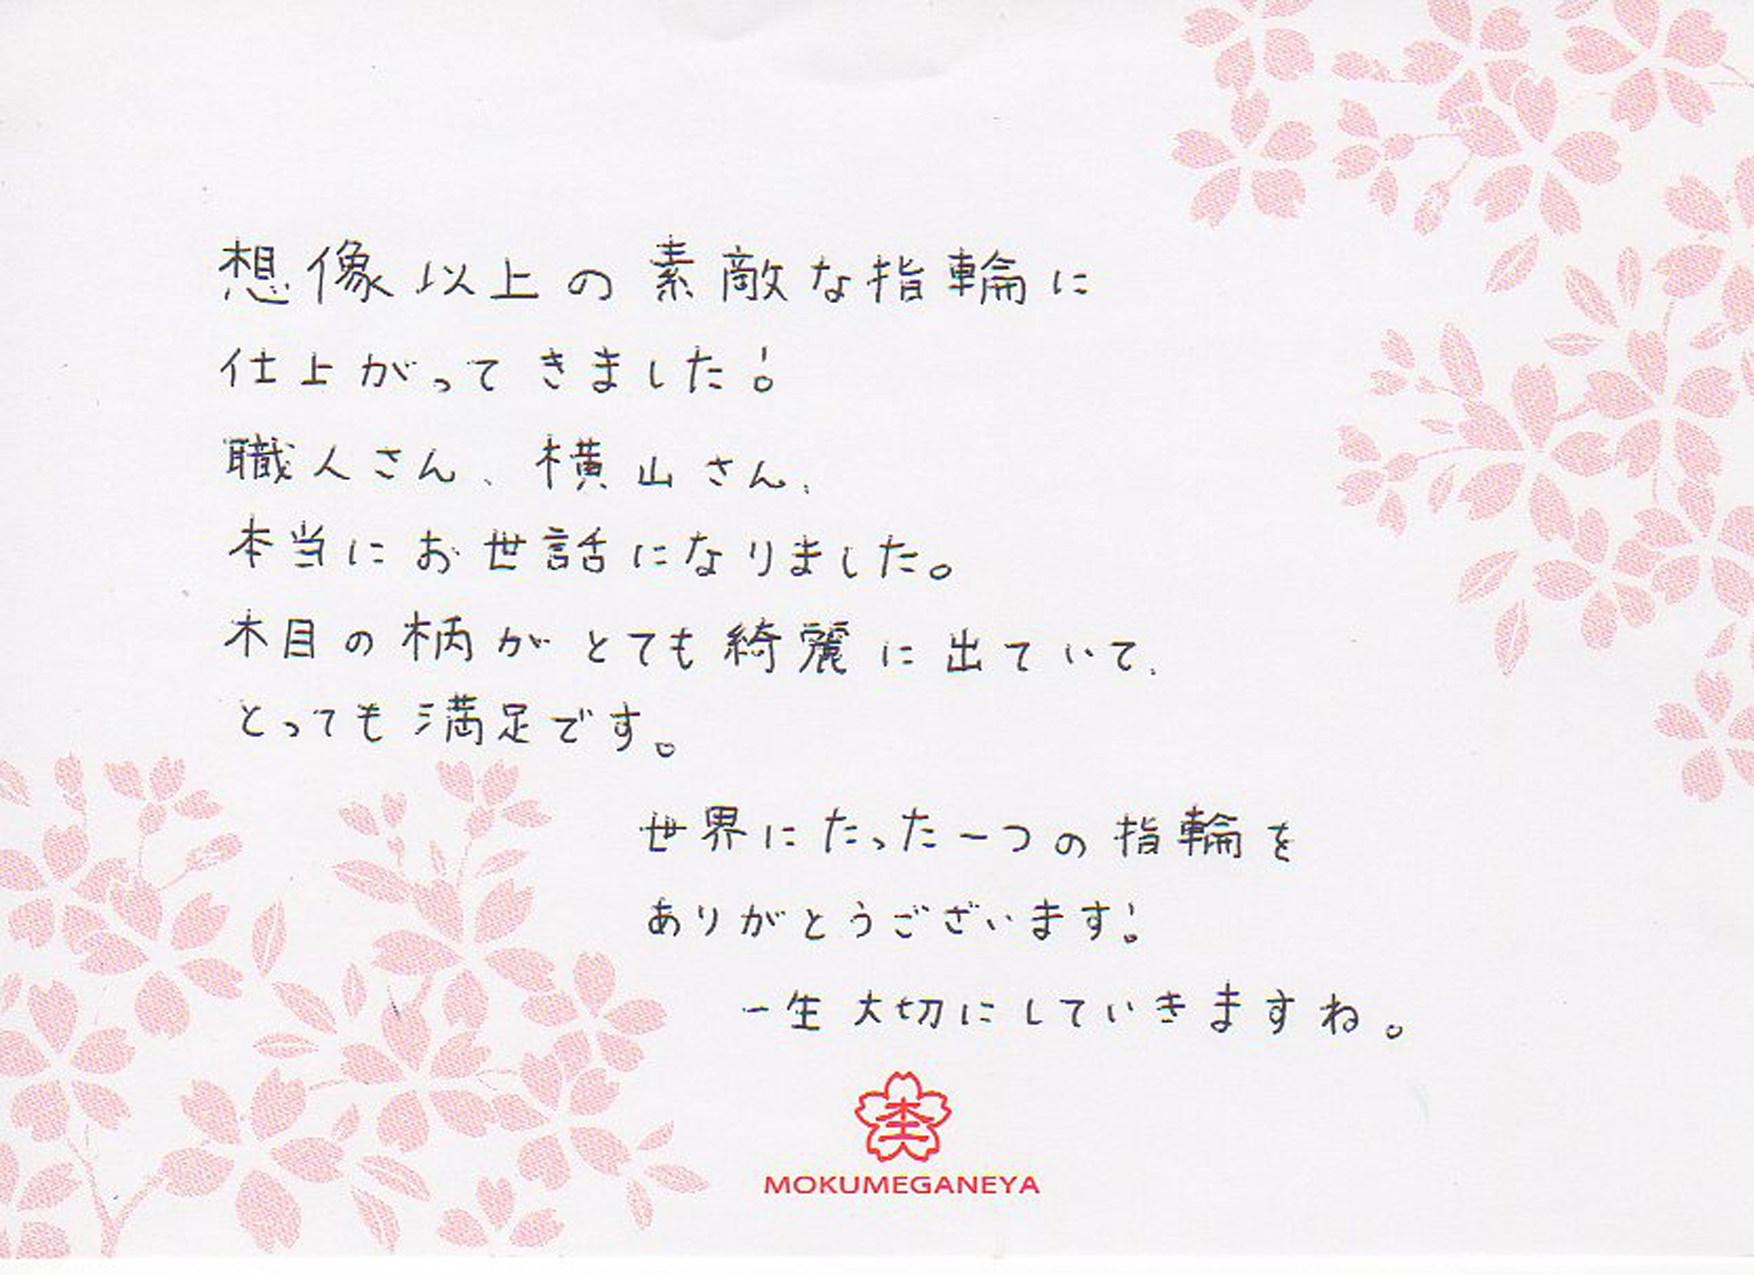 想像以上の素敵な指輪に
仕上がってきました!
職人さん、横山さん、
本当にお世話になりました。
木目の柄がとても綺麗に出ていて、
とっても満足です。
世界にたった一つの指輪を
ありがとうございます!
一生大切にしていきますね。
MOKUMEGANEYA